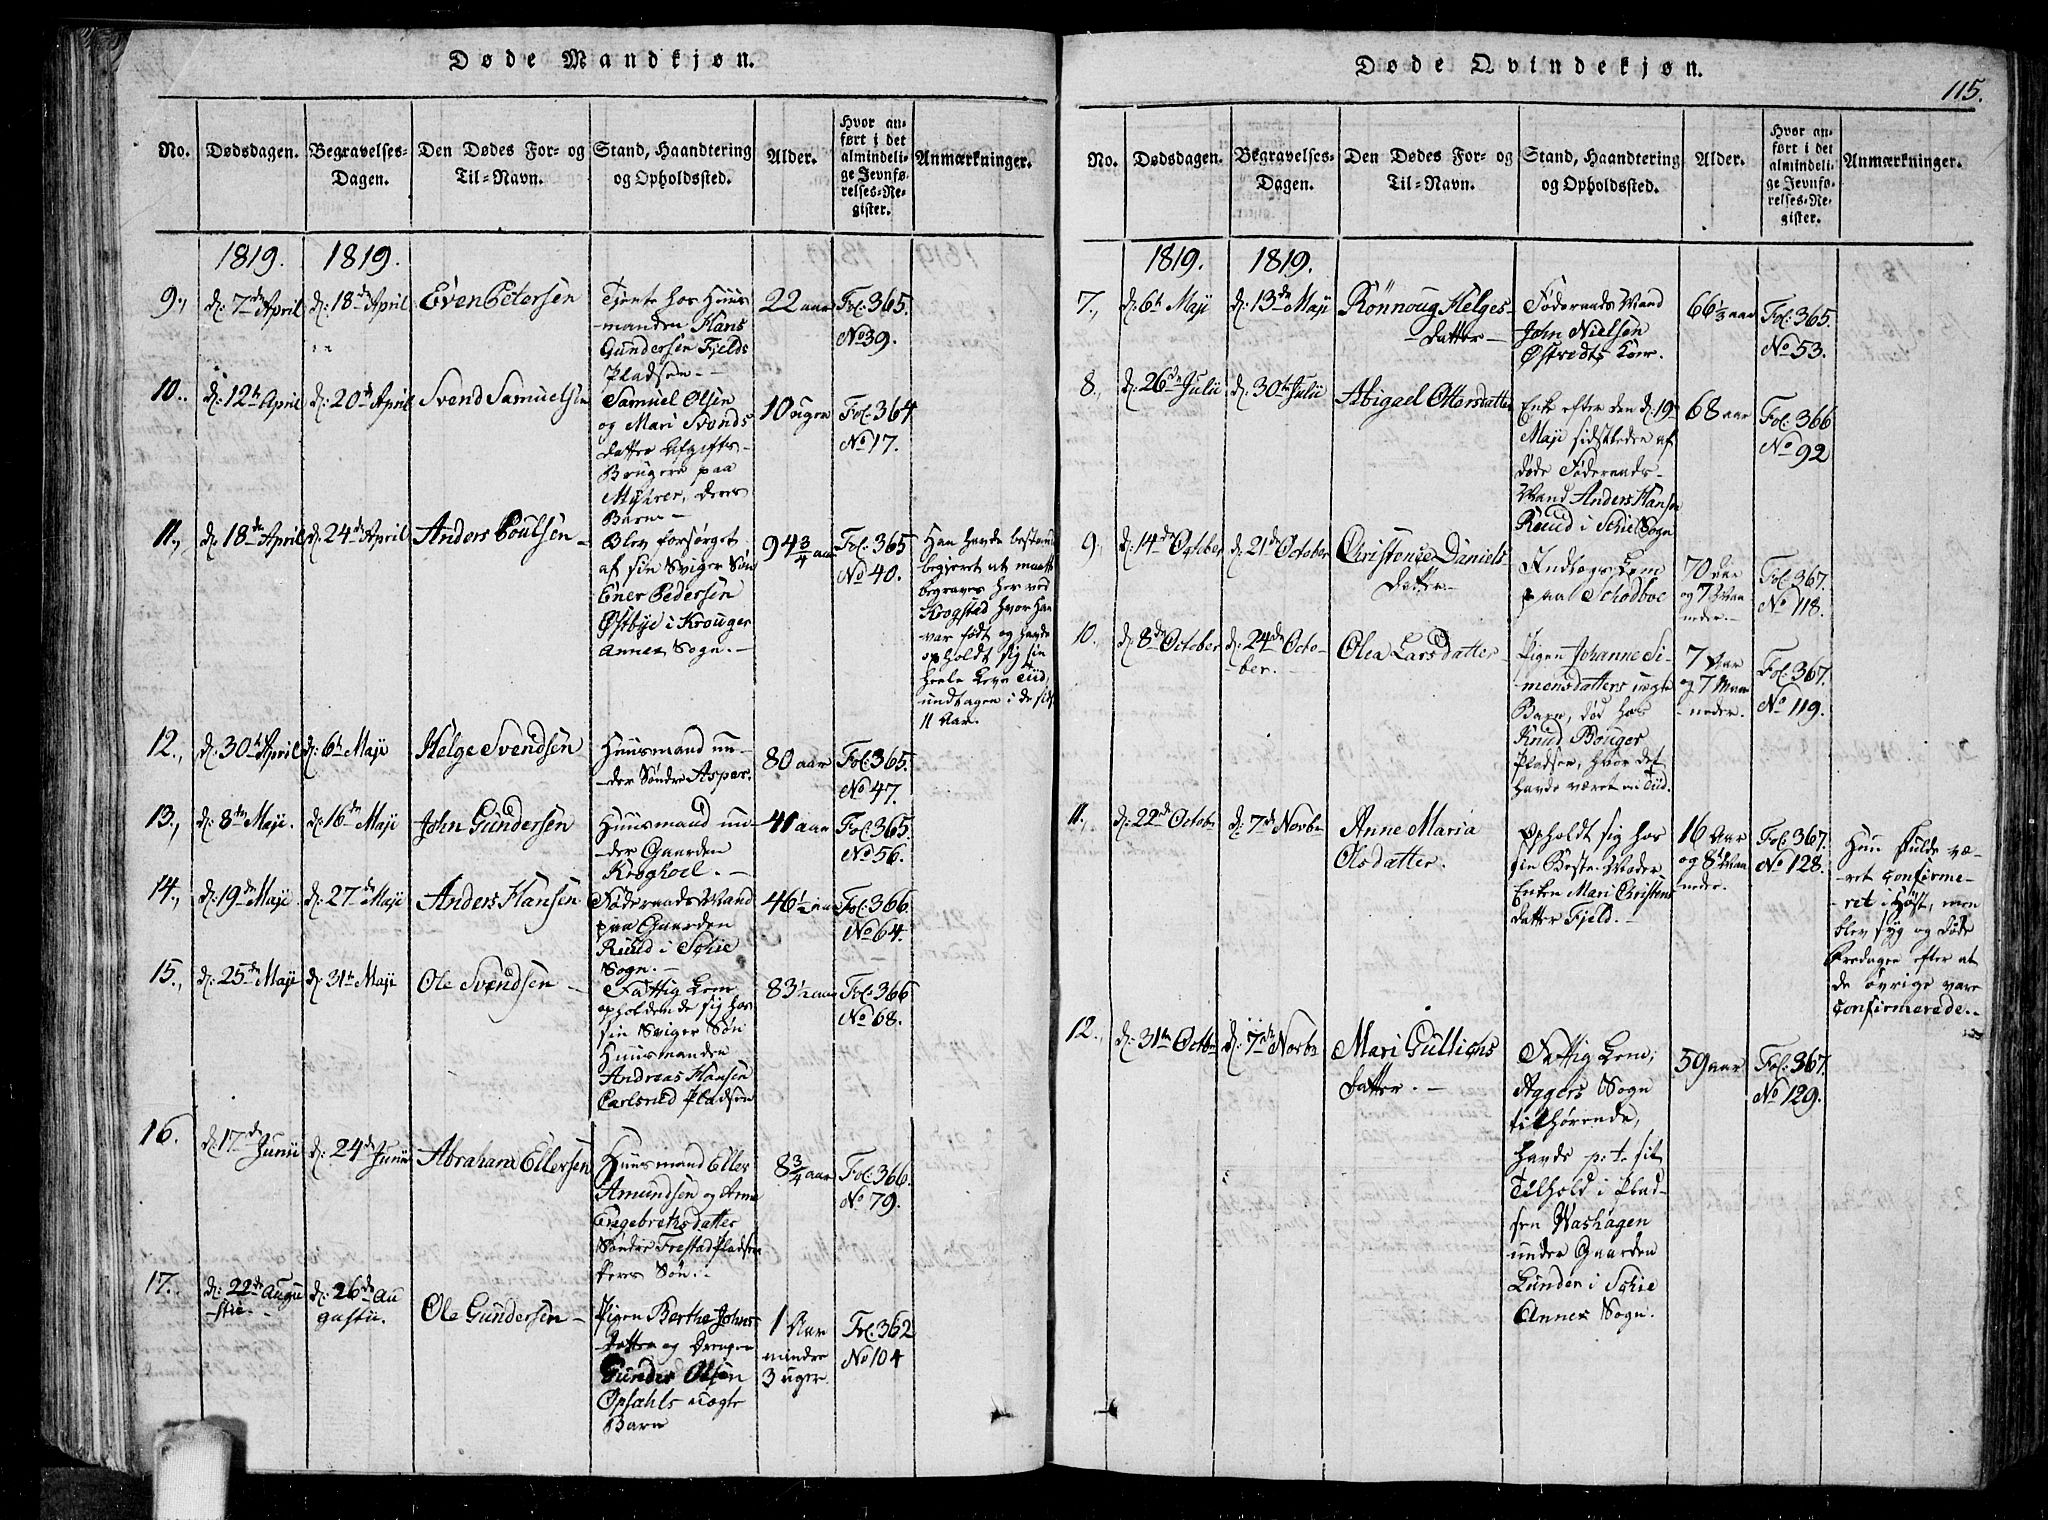 Døde Mandkjøn.
No.
Dødsdagen.
Begravelses-
Dagen.
Den Dødes For- og
Til-Navn.
Stand, Haandtering
og Opholdssted.
Alder.
Hvor an-
ført i det
almindeli-
ge Jevnfø-
relses-Re-
gister.
Anmærkninger.
1819. 1819.
9., d: 7de April d: 18de April Even Petersen
Tjente hos Huus
manden Hans
Gundersen Fjelds
Pladsen
22 aar
Fol: 365.
No 39.
10.. d: 12te April d: 20de April Svend Samuelsen
Samuel Olsen
og Mari Svends
datter Afgifts-
Brugere paa
Myhrer, deres
Barn
10 ugen
Fol: 364
No 17.
11., d: 18de April d: 24de April Anders Poulsen
Blev forsørget
af sin Sviger Søn
Ener Pedersen
Østbye i Krouger
Annex Sogn.
94 3/4 aar
Fol: 365
No 40.
Han havde bestemt
begjeret at maatte
begraves her ved
Krogstad hvor han
var født og havde
opholdt sig sin
heele Leve Tiid,
undtagen i de sidste
11 Aar.
12., d: 30te April d: 6te Maji Helge Svendsen
Huusmand un-
der Søndre Asper.
80 aar
Fol: 365.
No 47.
13., d: 8de Maji. d: 16de Maji John Gundersen
Huusmand un-
der Gaarden
Kroghoel.
41 aar
Fol: 365.
No 56.
14., d: 19de Maji d: 27de Maji Anders Hansen
Føderaads Mand
paa Gaarden
Ruud i Schie
Sogn.
46 1/2 aar
Fol: 366.
No 64.
15., d: 25de Maji d: 31te Maji Ole Svendsen
Fattig Lem
opholdende sig hos
sin Sviger Søn
Huusmanden
Andreas Hansen
Carlsrud Pladsen
83 1/2 aar
Fol: 366
No 68.
16. d: 17de Junii d: 24de Junii Abraham Ellersen
Huusmand Eller
Amundsen og Anne
Engebretsdatter
Søndre Frestad Pladsen
deres Søn.
8 3/4 aar
Fol: 366.
No 79.
17. d: 22de Augu
stii. d: 26de Au
gustii. Ole Gundersen
Pigen Berthe Johns
datter og Drengen
Gunder Olsen
Opsahls uægte
Barn
1 Aar
mindre
3 uger.
Fol: 362
No 104
Døde Qvindekjøn.
115.
No.
Dødsdagen.
Begravelses-
Dagen.
Den Dødes For- og
Til-Navn.
Stand, Haandtering
og Opholdssted.
Alder.
Hvor an-
ført i det
almindeli-
ge Jevnfø-
relses-Re-
gister.
Anmærkninger.
1819. 1819.
7., d: 6te Maji d: 13de Maji Rönnoug Helges-
datter
Føderaads Mand
John Nielsen
Østredts Kone.
66 1/3 aar
Fol: 365.
No 53.
8., d: 26de Julii d: 30te Julii Abigael Ottersdatter
Enke efter den d: 19
Maji sidstleden af
døde Føderaads-
Mand Anders Hansen
Ruud i Schie Sogn
68 aar
Fol: 366
No 92
9., d: 14de October d: 21de October Christence Daniels
datter
Indlægs Lem
paa Schodboe
70 Aar
og 7 Maa
neder.
Fol: 367.
No 118.
10., d: 8de October d: 24de Octo-
ber. Olea Larsdatter
Pigen Johanne Si-
mensdatters uægte
Barn, død hos
Knud Bouger
Pladsen, hvor det
havde været en Tiid.
7 Aar
og 7 Maa
neder.
Fol: 367.
No 119.
11., d: 22de Octobr d: 7de Novbr Anne Maria
Olsdatter.
Opholdt sig hos
sin Beste-Moder
Enken Mari Christens
datter Fjeld.
16 Aar
og 8 Maa
neder.
Fol: 367.
No 128.
Hun skulde væ-
ret Confirme-
ret i Høst, men
blev syg og døde
Fredagen efter at
de øvrige vare
Confirmerede.
12., d: 31te Octbr d: 7de Novbr Mari Gullichs
datter.
Fattig Lem;
Aggers Sogn
tilhørende,
havde p: t: sit
Tilhold i Plad-
sen Washagen
under Gaarden
Lunder i Schie
Annex Sogn.
59 aar
Fol: 367.
No 129.